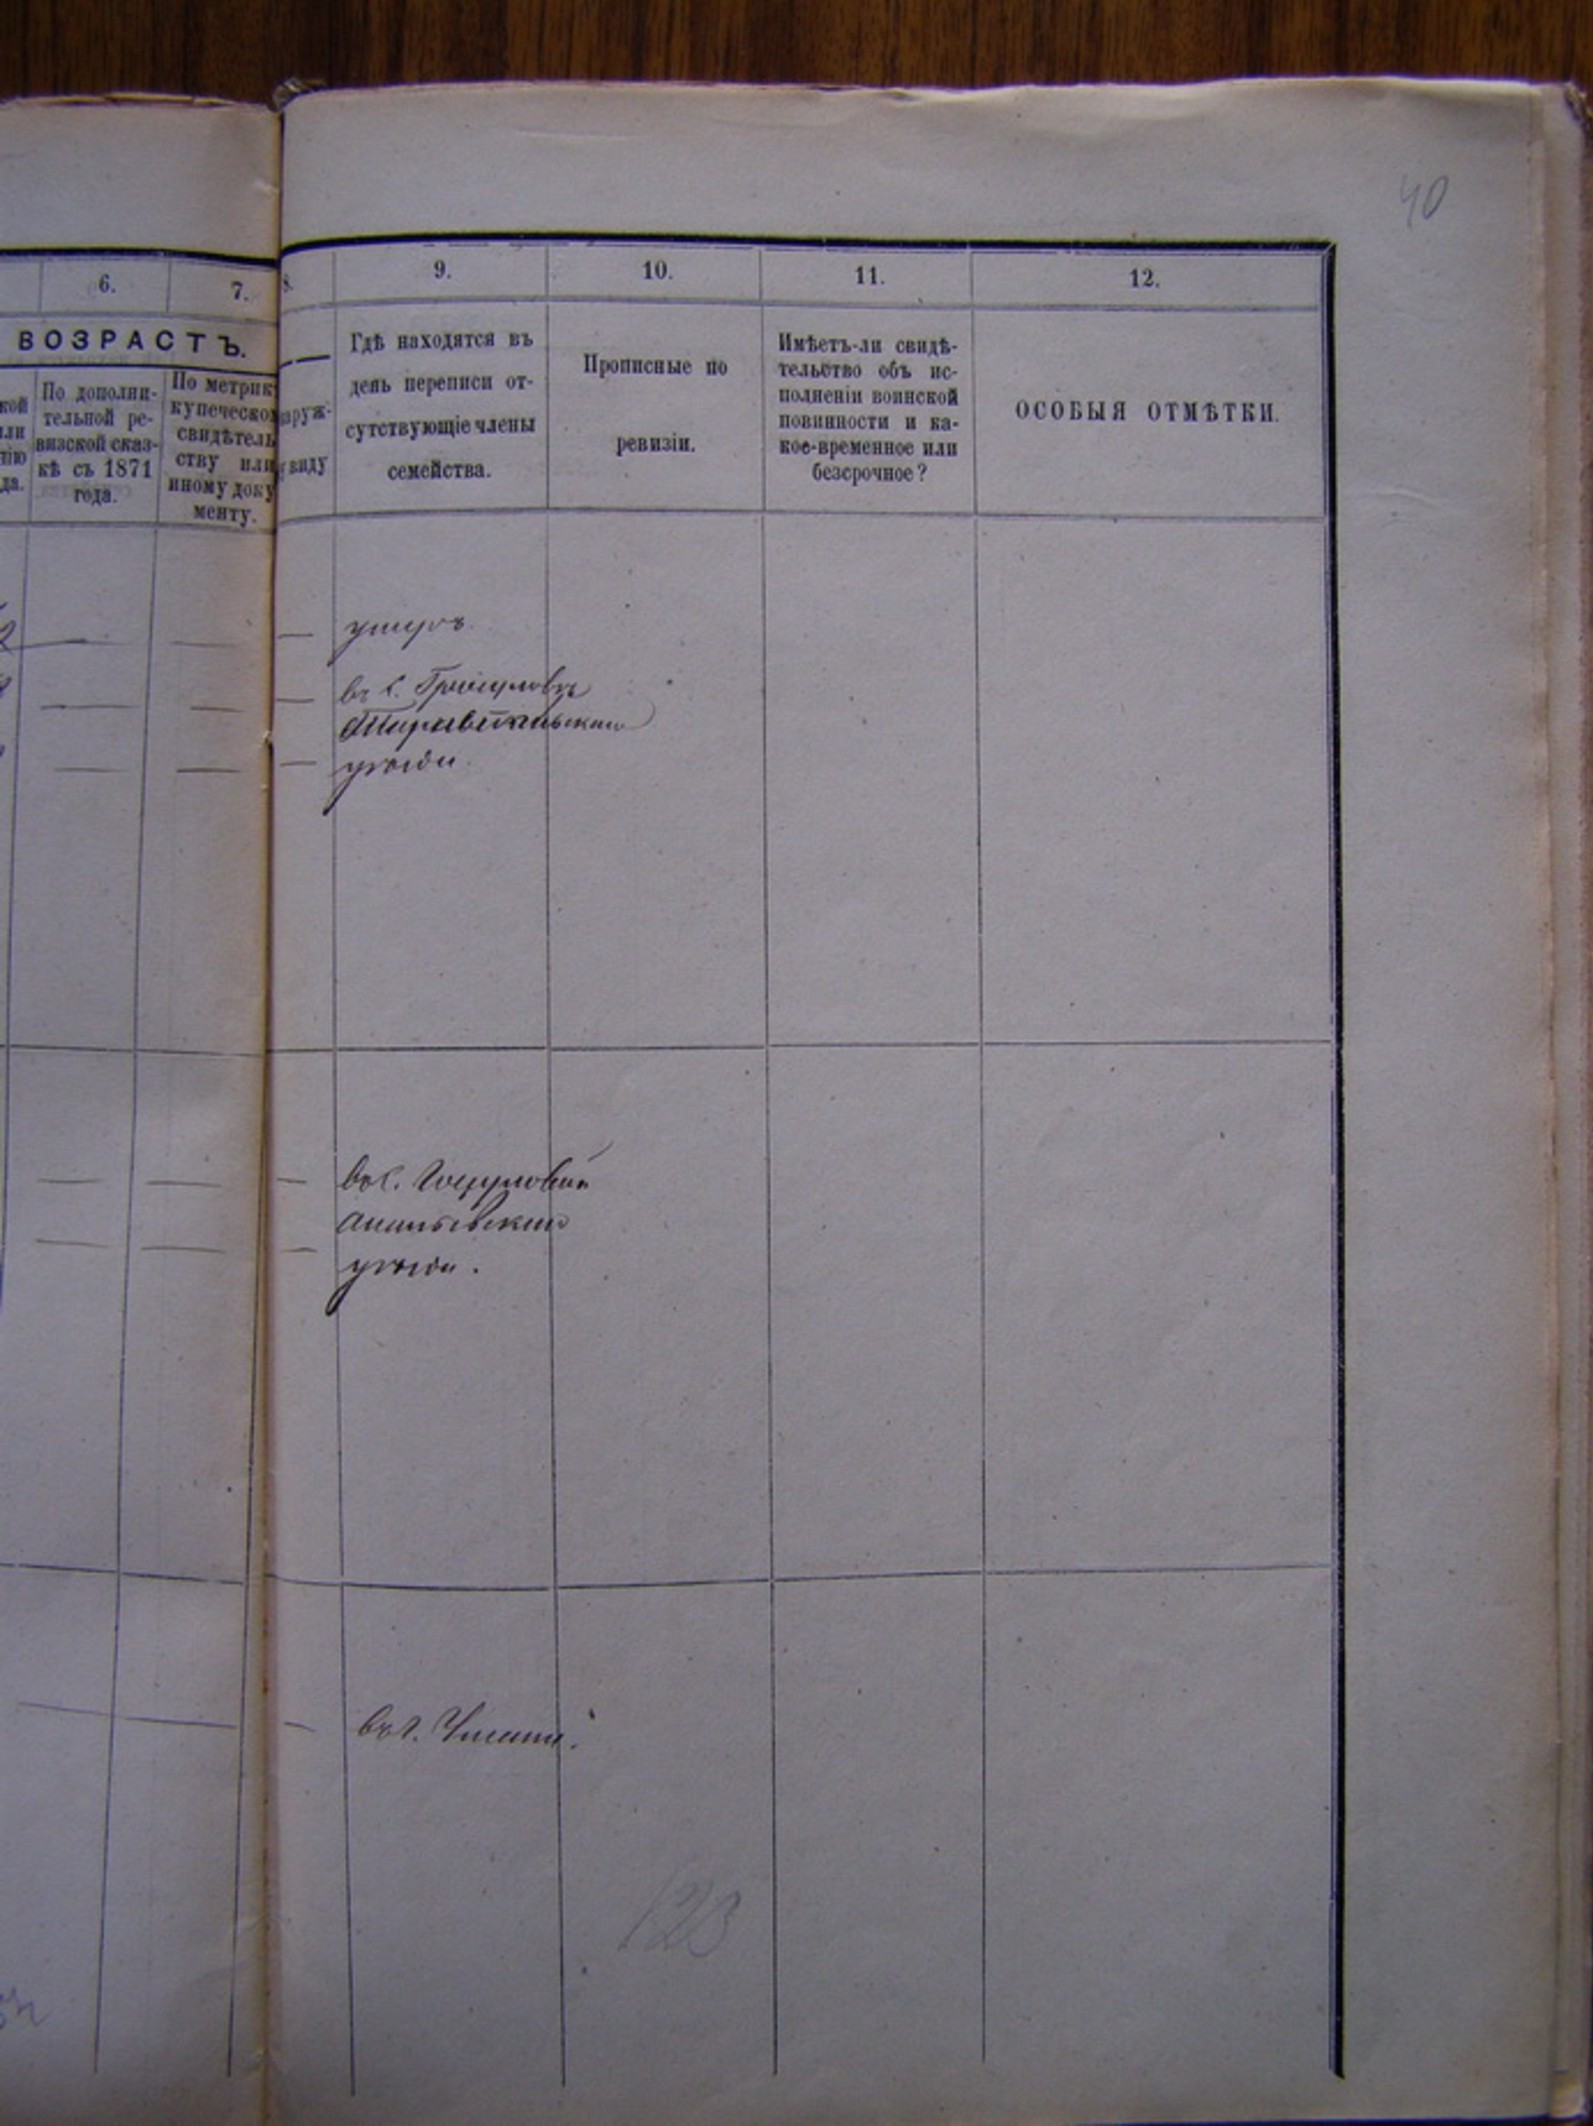 40
6.
7.
8.
9.
10.
11.
12.
ВОЗРАСТЪ.
кой
или
нію
да.
По дополни-
тельной ре-
визской сказ-
кѣ съ 1871
года.
По метрик
купеческо
свидѣтель
ству или
иному доку
менту.
наруж-
у виду
Гдѣ находятся въ
день переписи от-
сутствующіе члены
семейства.
Прописные по
ревизіи.
Имѣетъ-ли свидѣ-
тельство объ ис-
полненіи воинской
повинности и ка-
кое-временное или
безсрочное?
ОСОБЫЯ ОТМѢТКИ.
умеръ.
въ с. Гросуловѣ
Тираспольскаго
уѣзда.
въ с.
Ананьевскаго
уѣзда.
въ г. Умани.
123